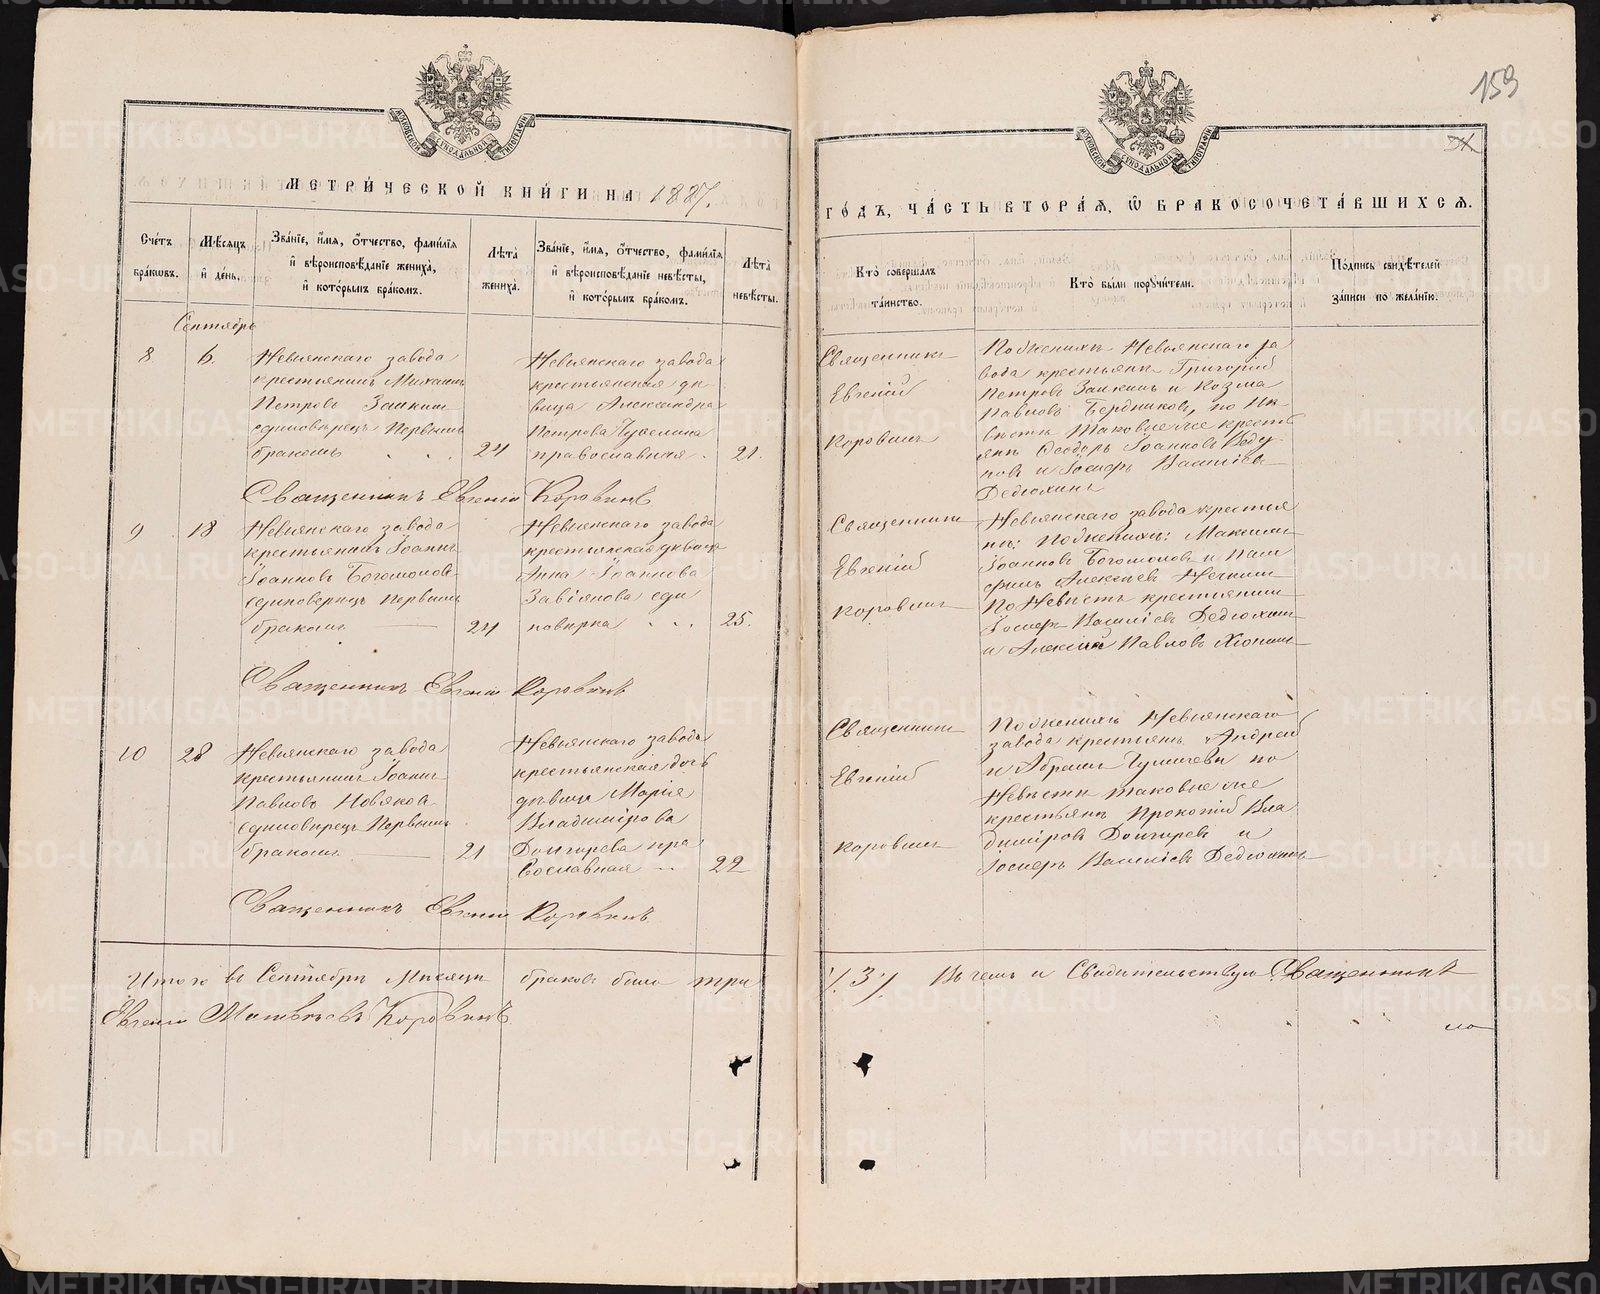 159
МОСКОВСКОЙ СѴНОДАЛЬНОЙ ТИПОГРАФІИ
МОСКОВСКОЙ СѴНОДАЛЬНОЙ ТИПОГРАФІИ
МЕТРИ́ЧЕСКОЙ КНИ́ГИ НА 1887.
ГО́ДЪ, ЧА́СТЬ ВТОРА́Ѧ, Ѿ БРАКОСОЧЕТА́ВШИХСѦ.
Сче́тъ бра́кѡвъ.
Мѣ́сяцъ и҆ де́нь.
Зва́нїе, и҆́мя, ѻ҆́тчество, фами́лїя и҆ вѣроисповѣ́данїе жениха̀, и҆ кото́рымъ бра́комъ.
Лѣ́та̀ жениха̀.
Зва́нїе, и҆́мя, ѻ҆́тчество, фами́лїя и҆ вѣроисповѣ́данїе невѣ́сты, и҆ кото́рымъ бра́комъ.
Лѣ́та̀ невѣ́сты.
Кто̀ соверша́лъ та́инство.
Кто̀ бы́ли порꙋчи́тели.
По́дпись свидѣ́телей за́писи по жела́нїю.
Сентябрь
8
6.
Невьянскаго завода
крестьянинъ Михаилъ
Петровъ Заикинъ
единовѣрецъ Первымъ
бракомъ . . .
24
Невьянскаго завода
крестьянская дѣ
вица Александра
Петрова
православная .
21.
Священникъ
Евгеній
Коровинъ
Подженихѣ Невьянскаго за
вода крестьяне Григорій
Петровъ Заикинъ и Козма
Павловъ Бердниковъ, по Не
вѣстѣ таковые же кресть
яне Ѳеодоръ Іоанновъ Воду
новъ и Іосифъ Васильевъ
Дедюхинъ
Священникъ Евгеній Коровинъ
9
18
Невьянскаго завода
крестьянинъ Іоаннъ
Іоанновъ Богомоловъ
единоверецъ первымъ
бракомъ
24
Невьянскаго завода
крестьянская девица
Анна Іоаннова
Завіялова еди
новѣрка . . .
25.
Священникъ
Евгеній
Коровинъ
Невьянскаго завода крестья
не: Подженихѣ: Максимъ
Іоанновъ Богомоловъ и Пам
филъ Алексѣевъ Нечкинъ
По Невѣстѣ крестьянинъ
Іосифъ Василіевъ Дедюхинъ
и Алексій Павловъ
Священникъ Евгеній Коровинъ
10
28
Невьянскаго завода
крестьянинъ Іоаннъ
Павловъ Новяковъ
единовѣрецъ Первымъ
бракомъ
21
Невьянскаго завода
крестьянская дочь
дѣвица Марія
Владимірова
Долгирева пра
вославная ..
22
Священникъ
Евгеній
Коровинъ
Подженихѣ Невьянскаго
завода крестьяне Андрей
и Абрамъ по
Невѣсти таковые же
крестьяне Прокопій Вла
диміровъ Долгиревъ и
Іосифъ Василіевъ Дедюхинъ
Священникъ Евгеній Коровинъ
Итого въ Сентябрѣ Мѣсяцѣ браковъ было три /. 3 ./ Въ чемъ и Свидительствую Священникъ
Евгеній Матвѣевъ Коровинъ
METRIKI.GASO-URAL.RU